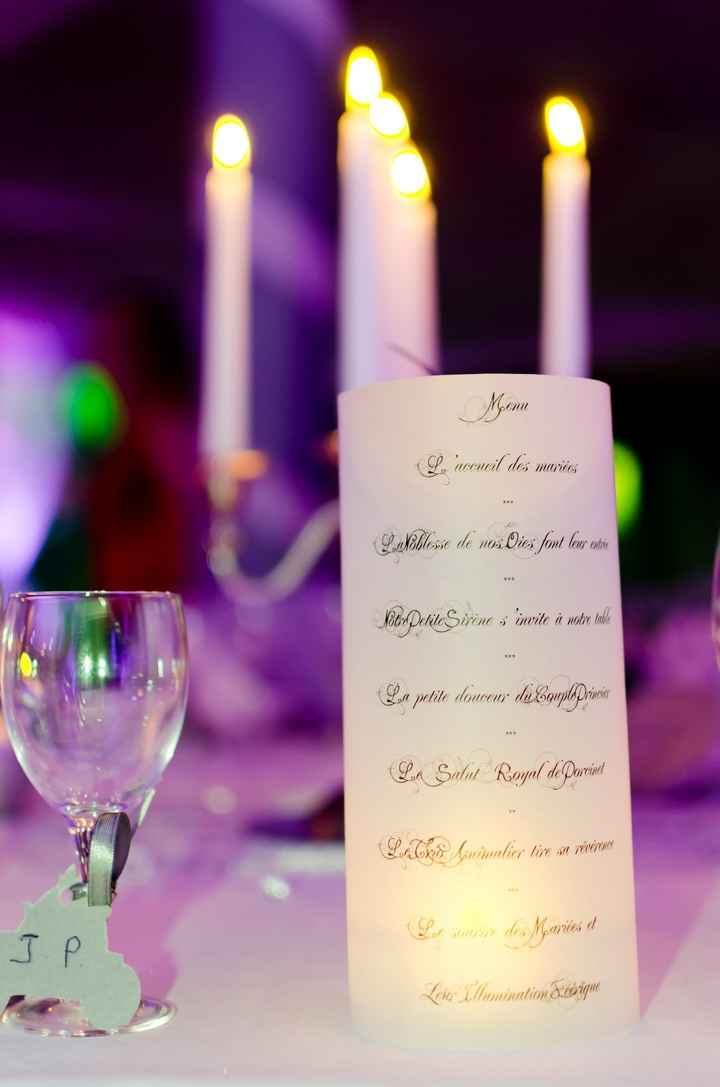 Menu
L'accueil des mariées
...
La Noblesse de nos Oies font leur entrée
...
Notre Petite Sirène s'invite à notre table
...
La petite douceur du Couple Princier
...
Le Salut Royal de Porcinet
..
Le Trio Animalier tire sa révérence
...
Le sourire des Mariées et
Leur Illumination Féérique
J P.